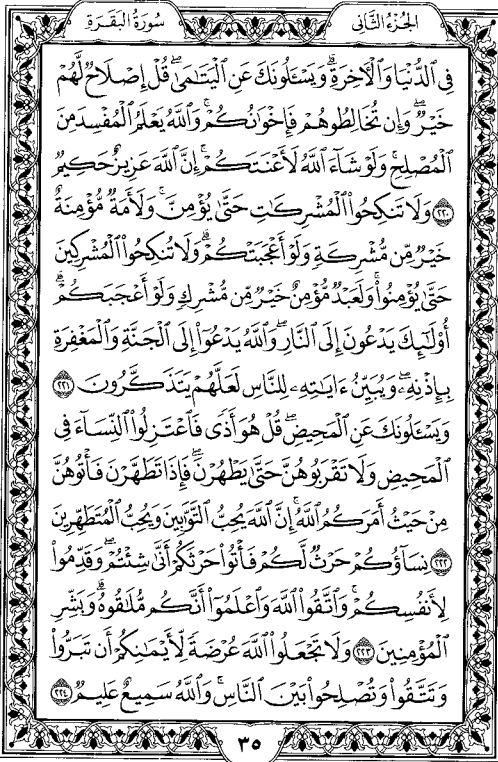 سُورَةُ البَقَرَةِ
الجُزْءُ الثَّانِى
فِى ٱلدُّنْيَا وَٱلْءَاخِرَةِ ۗ وَيَسْـَٔلُونَكَ عَنِ ٱلْيَتَـٰمَىٰ ۖ قُلْ إِصْلَاحٌ لَّهُمْ
خَيْرٌ ۖ وَإِن تُخَالِطُوهُمْ فَإِخْوَٰنُكُمْ ۚ وَٱللَّهُ يَعْلَمُ ٱلْمُفْسِدَ مِنَ
ٱلْمُصْلِحِ ۚ وَلَوْ شَآءَ ٱللَّهُ لَأَعْنَتَكُمْ ۚ إِنَّ ٱللَّهَ عَزِيزٌ حَكِيمٌ
٢٢٠ وَلَا تَنكِحُوا۟ ٱلْمُشْرِكَـٰتِ حَتَّىٰ يُؤْمِنَّ ۚ وَلَأَمَةٌ مُّؤْمِنَةٌ
خَيْرٌ مِّن مُّشْرِكَةٍ وَلَوْ أَعْجَبَتْكُمْ ۗ وَلَا تُنكِحُوا۟ ٱلْمُشْرِكِينَ
حَتَّىٰ يُؤْمِنُوا۟ ۚ وَلَعَبْدٌ مُّؤْمِنٌ خَيْرٌ مِّن مُّشْرِكٍ وَلَوْ أَعْجَبَكُمْ ۗ
أُو۟لَـٰٓئِكَ يَدْعُونَ إِلَى ٱلنَّارِ ۖ وَٱللَّهُ يَدْعُوٓا۟ إِلَى ٱلْجَنَّةِ وَٱلْمَغْفِرَةِ
بِإِذْنِهِۦ ۖ وَيُبَيِّنُ ءَايَـٰتِهِۦ لِلنَّاسِ لَعَلَّهُمْ يَتَذَكَّرُونَ ٢٢١
وَيَسْـَٔلُونَكَ عَنِ ٱلْمَحِيضِ ۖ قُلْ هُوَ أَذًى فَٱعْتَزِلُوا۟ ٱلنِّسَآءَ فِى
ٱلْمَحِيضِ وَلَا تَقْرَبُوهُنَّ حَتَّىٰ يَطْهُرْنَ ۖ فَإِذَا تَطَهَّرْنَ فَأْتُوهُنَّ
مِنْ حَيْثُ أَمَرَكُمُ ٱللَّهُ ۚ إِنَّ ٱللَّهَ يُحِبُّ ٱلتَّوَّٰبِينَ وَيُحِبُّ ٱلْمُتَطَهِّرِينَ
٢٢٢ نِسَآؤُكُمْ حَرْثٌ لَّكُمْ فَأْتُوا۟ حَرْثَكُمْ أَنَّىٰ شِئْتُمْ ۖ وَقَدِّمُوا۟
لِأَنفُسِكُمْ ۚ وَٱتَّقُوا۟ ٱللَّهَ وَٱعْلَمُوٓا۟ أَنَّكُم مُّلَـٰقُوهُ ۗ وَبَشِّرِ
ٱلْمُؤْمِنِينَ ٢٢٣ وَلَا تَجْعَلُوا۟ ٱللَّهَ عُرْضَةً لِّأَيْمَـٰنِكُمْ أَن تَبَرُّوا۟
وَتَتَّقُوا۟ وَتُصْلِحُوا۟ بَيْنَ ٱلنَّاسِ ۗ وَٱللَّهُ سَمِيعٌ عَلِيمٌ ٢٢٤
٣٥